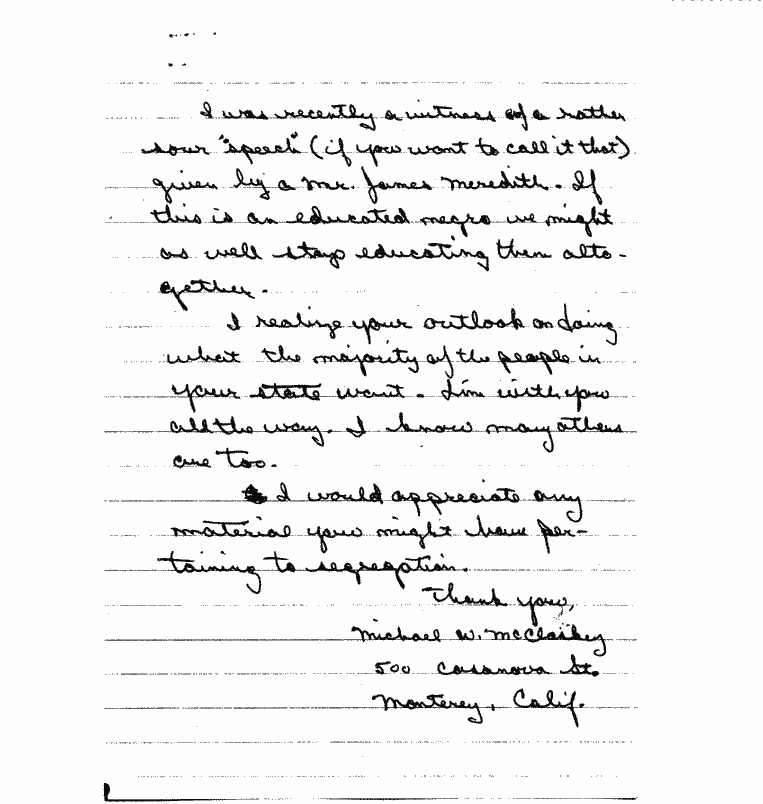 I was recently a witness of a rather
sour "speech" (if you want to call it that)
given by a Mr. James Meredith. If
this is an educated negro we might
as well stop educating them alto-
gether.
I realize your outlook on doing
what the majority of the people in
your state want. I'm with you
all the way. I know many others
are too.
I would appreciate any
material you might have per-
taining to segregation.
Thank you,
Michael W. McClaskey
500 Casanova St.
Monterey, Calif.